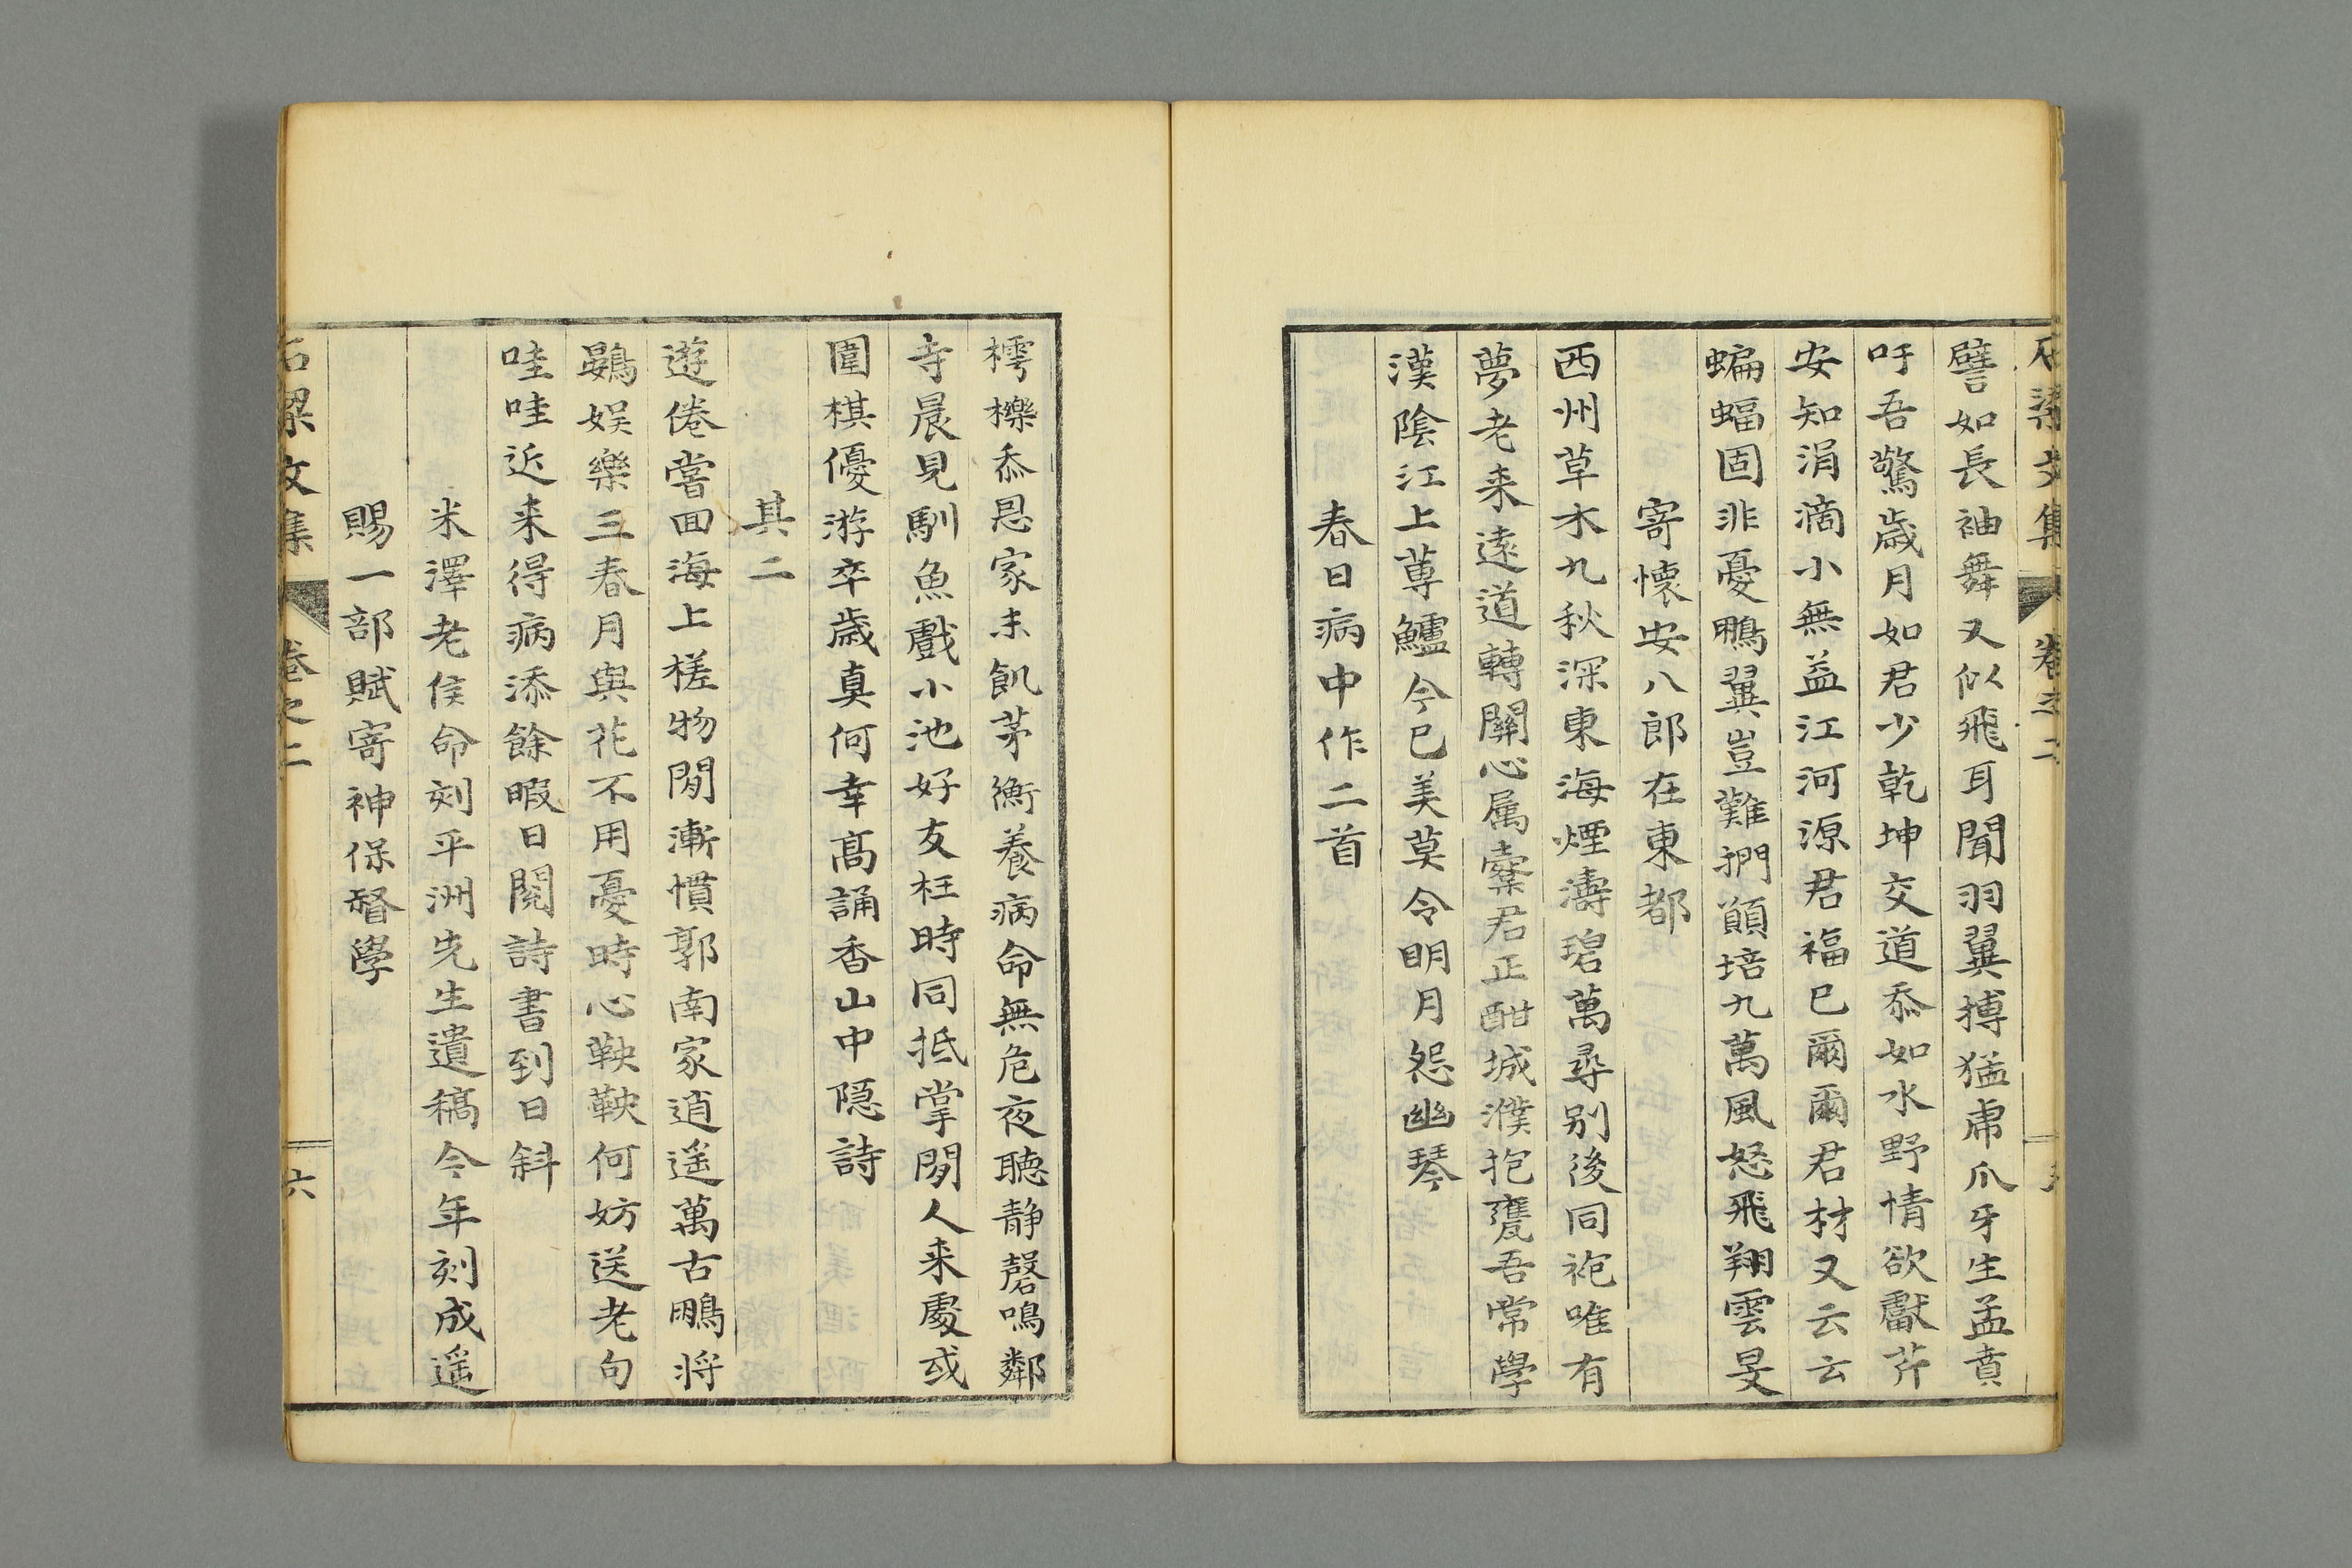 石梁文集 卷之二
譬如長袖舞又似飛耳聞羽翼搏猛虎爪牙生孟賁
吁吾驚歳月如君少乾坤交道忝如水野情欲獻芹
安知涓滴小無益江河源君福已爾爾君材又云云
蝙蝠固非憂鵬翼豈難捫顗培九萬風怒飛翔雲旻
寄懷安八郎在東都
西州草木九秋深東海煙濤碧萬尋别後同袍唯有
夢老来遠道轉關心属櫜君正酣城濮抱甕吾常學
漢陰江上蓴鱸今已美莫令明月怨幽琴
春日病中作二首
樗櫟忝恩家未飢茅衡養病命無危夜聽静磬鳴鄰
寺晨見馴魚戲小池好友枉時同抵掌閒人来處或
圍棋優游卒歳真何幸髙誦香山中隠詩
其二
遊倦嘗回海上槎物閒漸慣郭南家逍遥萬古鵬将
鷃娯樂三春月與花不用憂時心鞅鞅何妨送老句
哇哇近来得病添餘暇日閲詩書到日斜
米澤老侯命刻平洲先生遺稿今年刻成遥
賜一部賦寄神保督學
石梁文集 卷之二 六